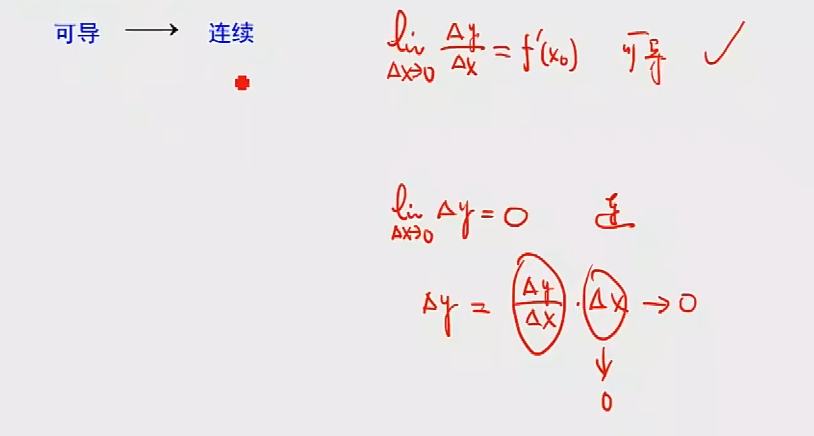 可导 → 连续
lim Δx→0 Δy/Δx = f'(x₀) 可导 ✓
lim Δx→0 Δy = 0
Δy = Δy/Δx · Δx → 0
↓
0